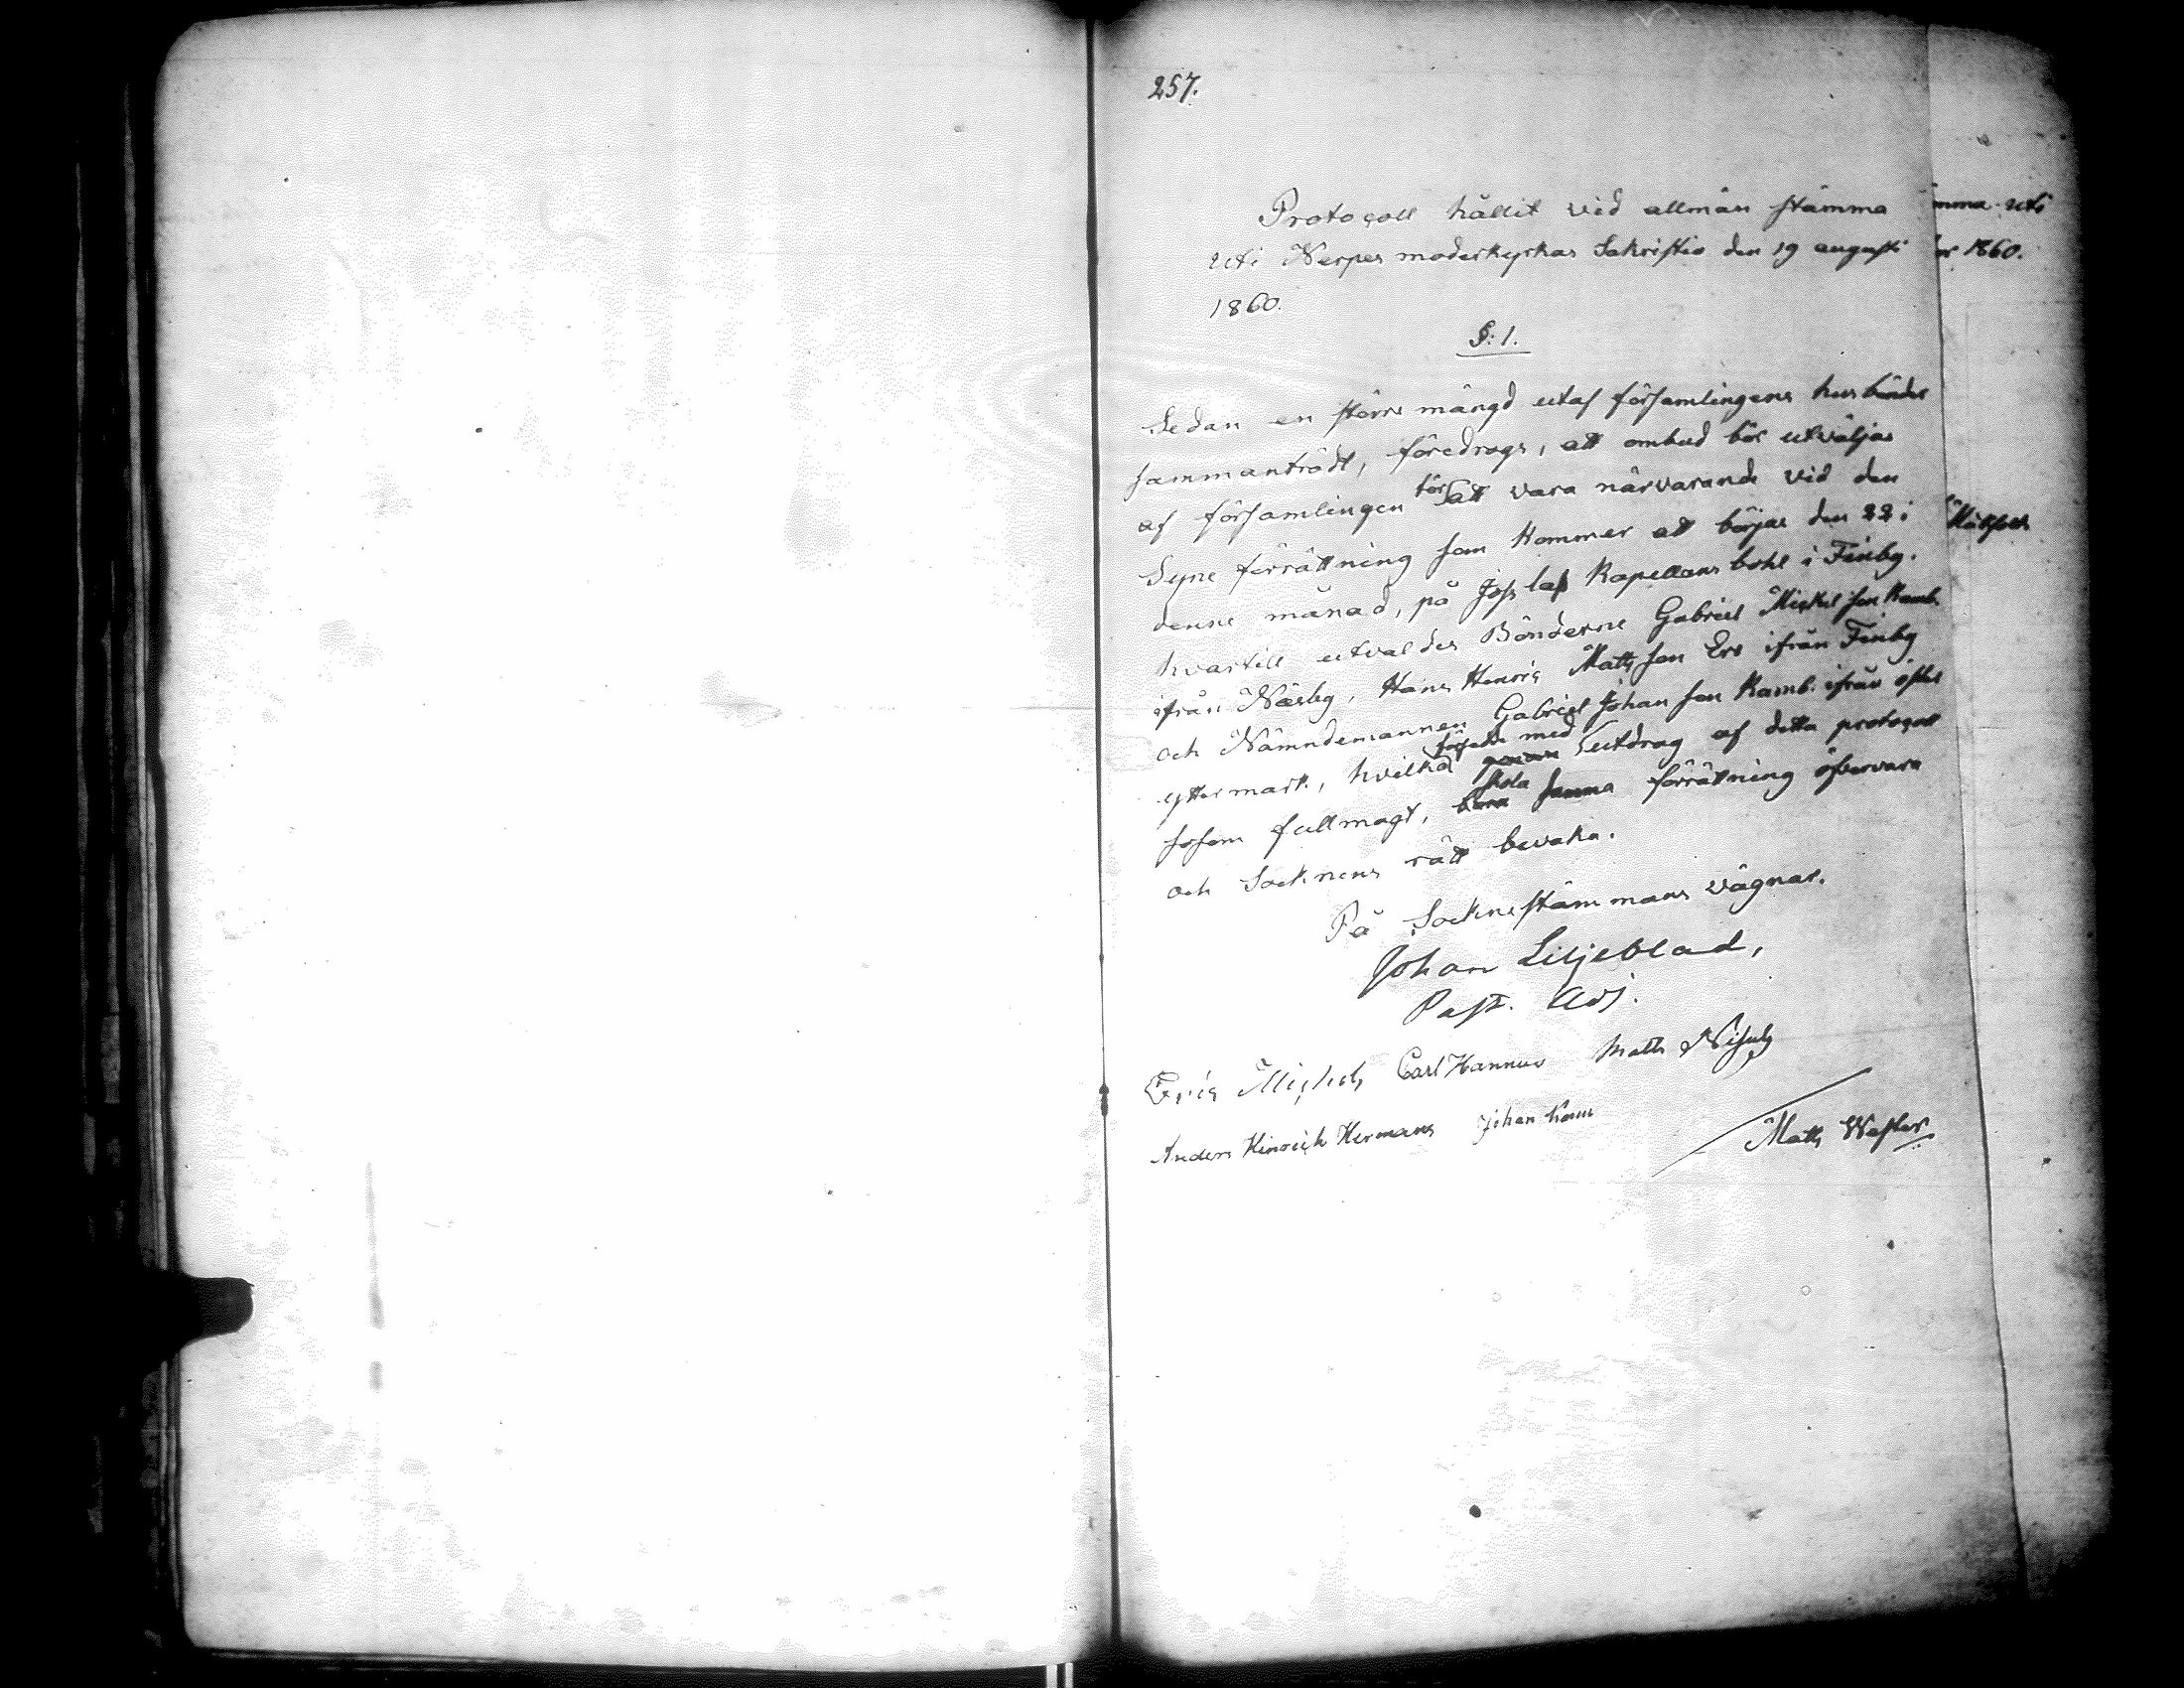 257.
Protocoll hållit vid allmän stämma
uti Nerpes moderkyrkas Sakristia den 19 augusti
1860.
§: 1.
Sedan en större mängd utaf församlingens husbönder
sammanträdt, föredrogs, att ombud bör utväljas
af församlingen för att vara närvarande vid den
Syne förrättning som kommer att börjas den 22 i
denne månad, på Kapellans bohl i Finby.
hvartill utvaldes Bönderne Gabriel Mickelsson Ramb.
ifrån Näsby, Hans Henric Mattsson Ers ifrån Finby
och Nämndemannen Gabriel Johansson Ramb. ifrån öfter
yttermark, hvilka försedde med utdrag af detta protocoll
såsom fullmagt, skola samma förrättning öfvervara
och Socknens rätt bevaka.
På Socknestämmans vägnar.
Johan Liljeblad,
Past. Adj.
Eric Mickels Carl Hannus Matts
Anders Hinrich Hermans Johan
Matts Wester
mma uti
1860.